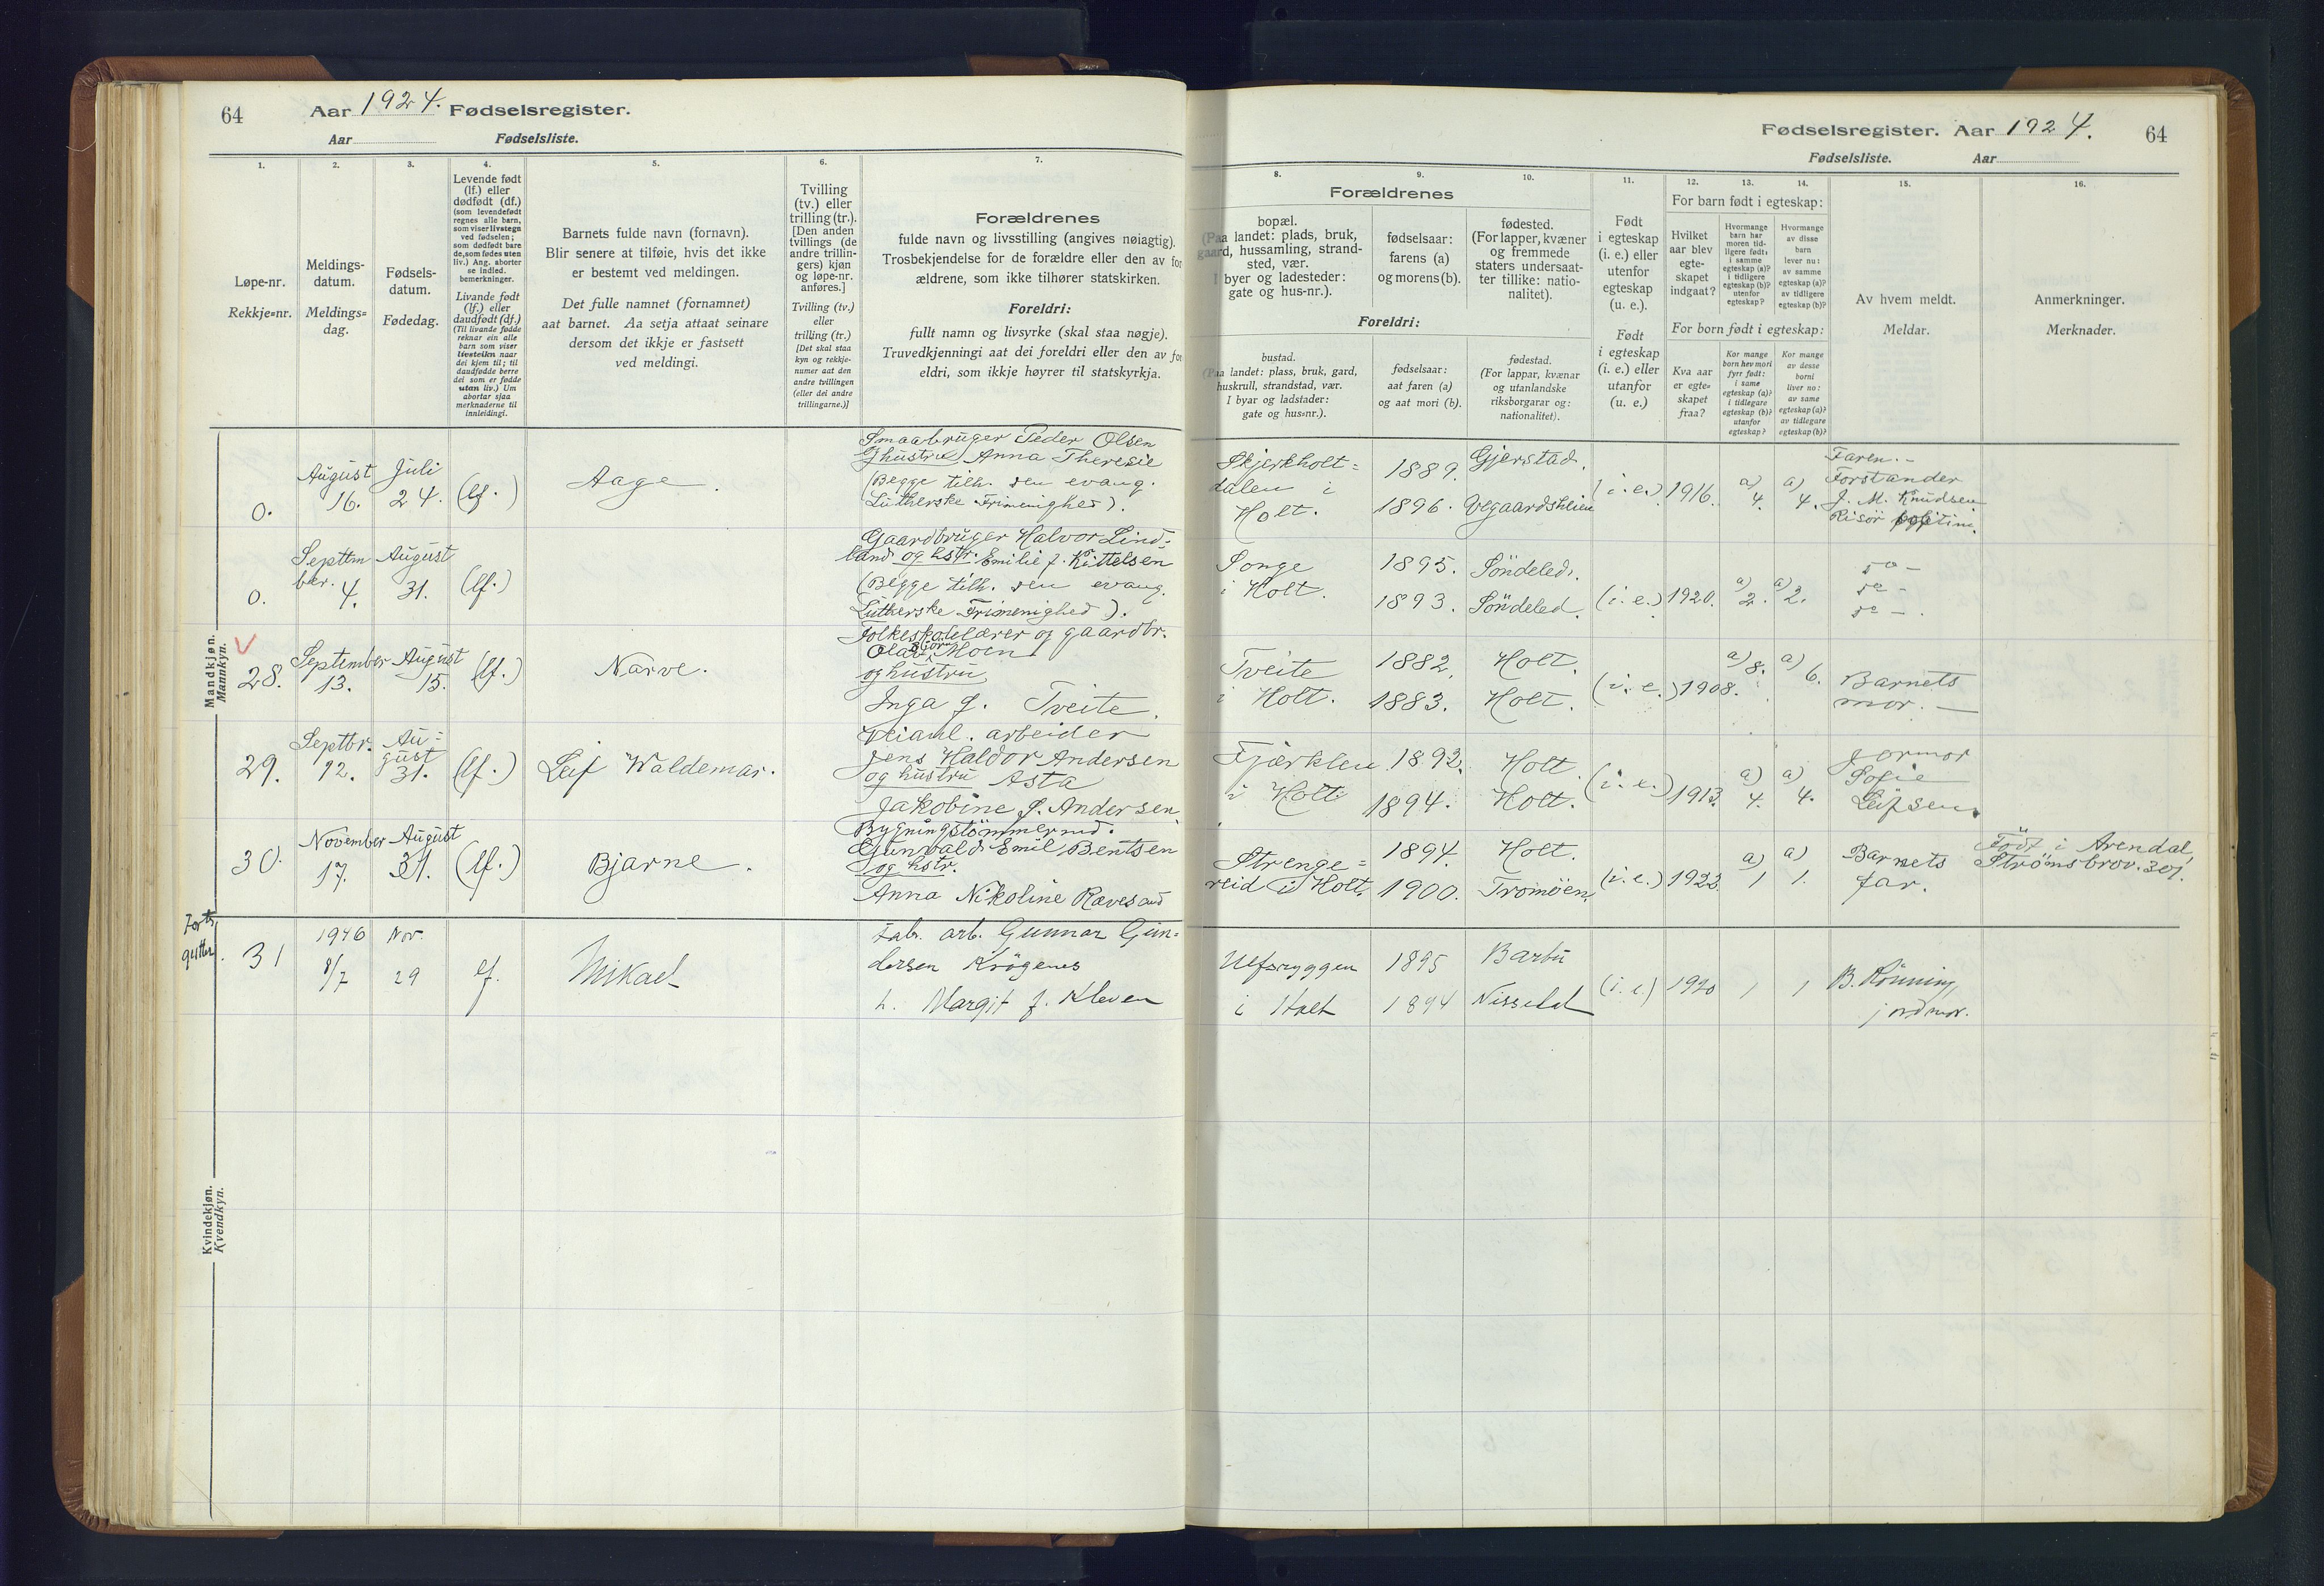 64
Aar 1924. Fødselsregister.
Aar Fødselsliste.
1.
Løpe-nr.
Rekkje=nr.
2.
Meldings-
datum.
Meldings=
dag.
3.
Fødsels-
datum.
Fødedag.
4.
Levende født
(lf.) eller
dødfødt (df.)
(som levendefødt
regnes alle barn,
som viser livstegn
ved fødselen;
som dødfødt bare
de, som fødes uten
liv.) Ang. aborter
se indled.
bemerkninger.
Livande født
(lf.) eller
daudfødt (df.)
(Til livande fødde
reknar ein alle
barn som viser
livsteikn naar
dei kjem til; til
daudfødde berre
dei som er fødde
utan liv.) Um
abortar sjaa
merknaderne til
innleidingi.
5.
Barnets fulde navn (fornavn).
Blir senere at tilføie, hvis det ikke
er bestemt ved meldingen.
Det fulle namnet (fornamnet)
aat barnet. Aa setja attaat seinare
dersom det ikkje er fastsett
ved meldingi.
6.
Tvilling
(tv.) eller
trilling (tr.).
[Den anden
tvillings (de
andre trillin-
gers) kjøn
og løpe-nr.
anføres.]
Tvilling (tv.)
eller
trilling (tr.)
[Det skal staa
kyn og rekkje-
numer aat den
andre tvillingen
(eller dei andre
trillingarne.)]
7.
Forældrenes
fulde navn og livsstilling (angives nøiagtig).
Trosbekjendelse for de forældre eller den av for
ældrene, som ikke tilhører statskirken.
Foreldri:
fullt namn og livsyrke (skal staa nøgje).
Truvedkjenningi aat dei foreldri eller den av for
eldri, som ikkje høyrer til statskyrkja.
Mandkjøn.
Mannkyn.
0.
August
16.
Juli
24.
(lf.)
Aage.
Smaabruger Peder Olsen
og hustru Anna Theresie
(Begge tilh. den evang.
Lutherske Frimenighed).
0.
Septem
ber.
4.
August
31.
(lf.)
Gaardbruger Halvor Lind-
land og hstr. Emilie f. Kittelsen
(Begge tilh. den evang.
Lutherske Frimenighed).
V
28.
September
13.
August
15.
(lf.)
Narve.
Folkeskolelærer og gaardbr.
Olav Moen
og hustru
Inga f. Tveite.
29.
Septbr.
12.
Au=
gust
31.
(lf.)
Leif Waldemar.
Veianl. arbeider
Jens Haldor Andersen
og hustru Asta
Jakobine f. Andersen.
30.
November
17.
August
31.
(lf.)
Bjarne.
Bygningstömmermd.
Gunvald Emil Bentsen
og hstr.
Anna Nikoline Rævesand
Forts.
gutter.
31
1946
8/7
Nov.
29
lf.
Mikael
Fabr. arb. Gunnar Gun=
dersen Krøgenes
h. Margit f. Kleven
Kvindekjøn.
Kvendkyn.
Fødselsregister. Aar 1924.
64
Fødselsliste. Aar
Forældrenes
8.
bopæl.
(Paa landet: plads, bruk,
gaard, hussamling, strand-
sted, vær.
I byer og ladesteder:
gate og hus-nr.).
9.
fødselsaar:
farens (a)
og morens (b).
10.
fødested.
(For lapper, kvæner
og fremmede
staters undersaat-
ter tillike: natio-
nalitet).
Foreldri:
bustad.
(Paa landet: plass, bruk, gard,
huskrull, strandstad, vær.
I byar og ladstader:
gate og hus=nr.).
fødselsaar:
aat faren (a)
og aat mori (b).
fødestad.
(For lappar, kvænar
og utanlandske
riksborgarar og:
nationalitet).
11.
Født
i egteskap
(i. e.) eller
utenfor
egteskap
(u. e.).
Født
i egteskap
(i. e.) eller
utanfor
(u. e.)
12. 13. 14.
For barn født i egteskap:
Hvilket
aar blev
egte-
skapet
indgaat?
Hvormange
barn har
moren tid-
ligere født:
i samme
egteskap (a)?
i tidligere
egteskap (b)?
utenfor
egteskap?
Hvormange
av disse
barn
lever nu:
av samme
egteskap (a)?
av tidligere
egteskap (b)?
For born født i egteskap:
Kva aar
er egte=
skapet
fraa?
Kor mange
born hev mori
fyrr født:
i same
egteskap (a)?
i tidlegare
egteskap (b)?
utanfor
egteskap?
Kor mange
av desse
borni
liver no:
av same
egteskap (a)?
av tidlegare
egteskap (b)?
15.
Av hvem meldt.
Meldar.
16.
Anmerkninger.
Merknader.
Skjerkholt=
dalen i
Holt.
1889.
1896.
Gjerstad.
Vegaardsheien
(i.e.)
1916.
a)
4.
a)
4.
Faren.-
Forstander
J. M. Knudsen
Risör
Songe
i Holt.
1895.
1893.
Söndeled.
Söndeled.
(i.e.)
1920.
a)
2.
a)
2.
do -
do -
do -.
Tveite
i Holt.
1882.
1883.
Holt.
Holt.
(i. e.)
1908.
a) 8.
a) 6.
Barnets
mor. -
Fjærklev
i Holt
1893.
1894.
Holt.
Holt.
(i.e.)
1913.
a)
4.
a)
4.
Jormor
Sofie
Leifsen.
Strenge=
reid i Holt.
1894.
1900.
Holt.
Tromöen.
(i.e.)
1923.
a)
1
a)
1.
Barnets
far.
Födt i Arendal,
Strømsbrov. 301.
i Holt
1895
1894
Barbu
Nissedal
(i.e.)
1920
1
1
B. Rönning,
jordmor.